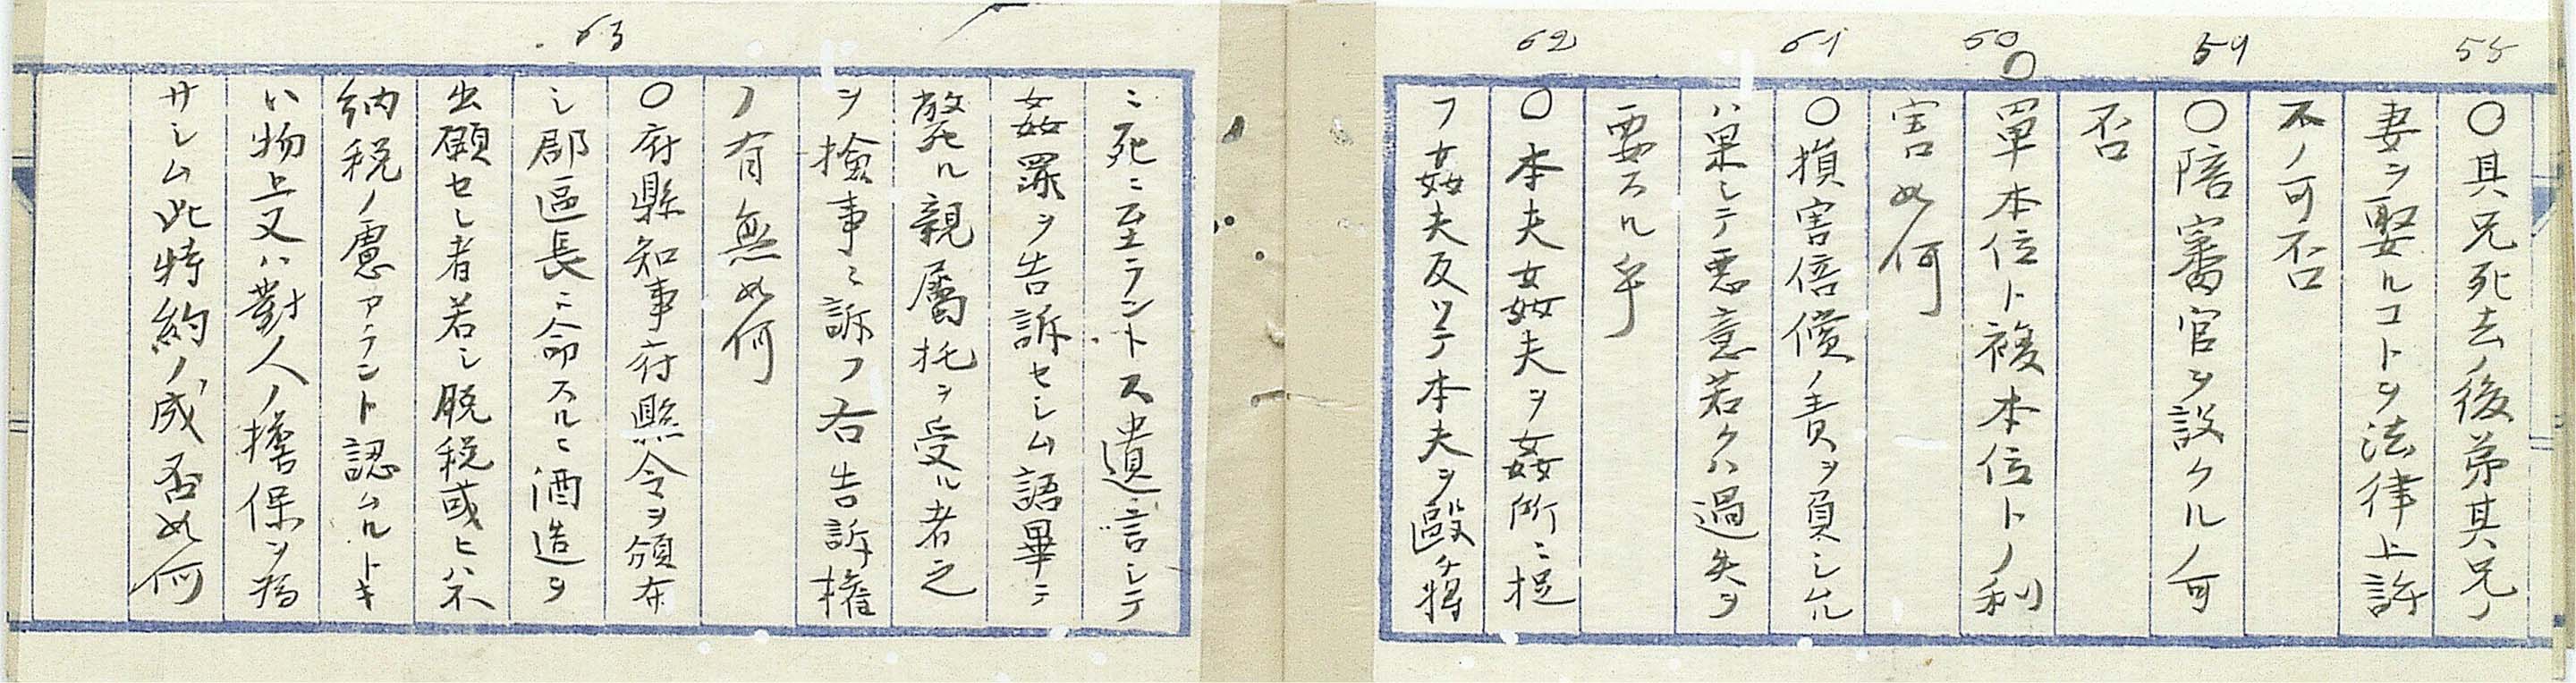 58
○其兄死去ノ後弟其兄ノ
妻ヲ娶ルコトヲ法律上許
不ノ可否
59
○陪審官ヲ設クルノ可
否
60
○単本位ト複本位トノ利
害如何
61
○損害倍償ノ責ヲ負シムル
ハ果シテ悪意若クハ過失ヲ
要スル乎
62
○本夫姦夫ヲ姦所ニ捉
フ姦夫反リテ本夫ヲ毆チ将
ニ死ニ至ラントス遺言シテ
姦罪ヲ告訴セシム語畢テ
斃ル親屬托ヲ受ル者之
ヲ撿事ニ訴フ右告訴権
ノ有無如何
63
○府縣知事府縣令ヲ頒布
シ郡區長ニ命スルニ酒造ヲ
出願セシ者若シ脱税或ヒハ不
納税ノ慮アラント認ムルトキ
ハ物上又ハ對人ノ擔保ヲ為
サシム此特約ノ成否如何